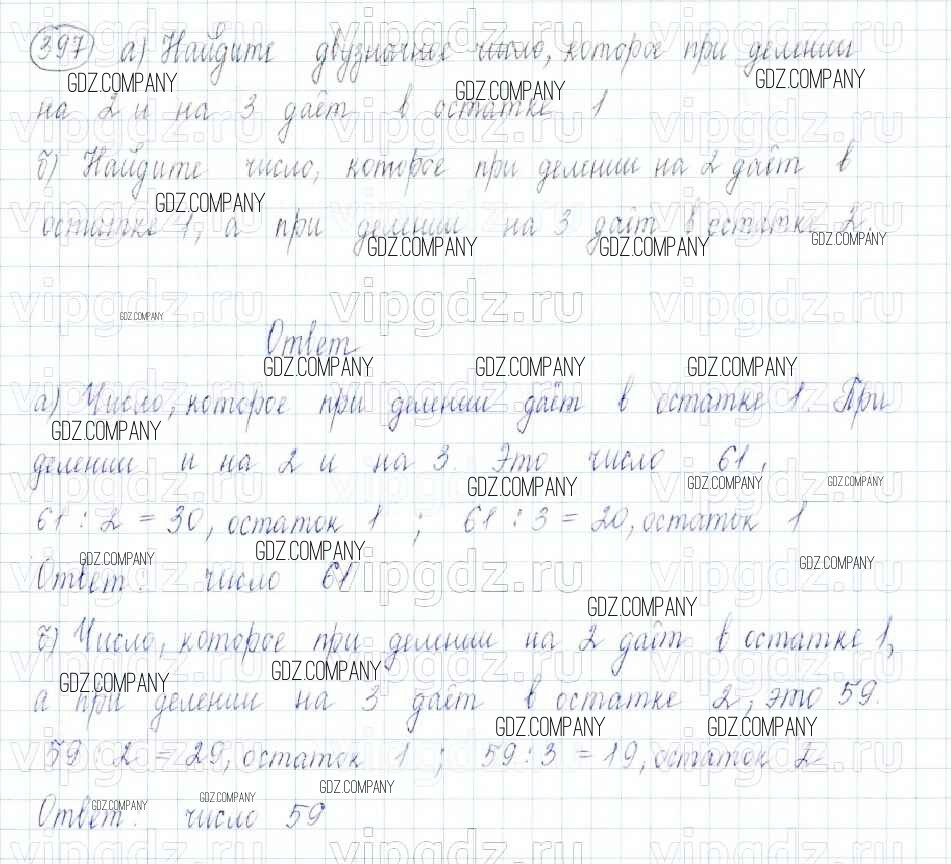 397 а) Найдите двузначное число, которое при делении
на 2 и на 3 даёт в остатке 1
б) Найдите число, которое при делении на 2 даёт в
остатке 1, а при делении на 3 даёт в остатке 2.
Ответ
а) Число, которое при делении даёт в остатке 1. При
делении и на 2 и на 3. Это число 61,
61 : 2 = 30, остаток 1 ; 61 : 3 = 20, остаток 1
Ответ: число 61
б) Число, которое при делении на 2 даёт в остатке 1,
а при делении на 3 даёт в остатке 2, это 59.
59 2 = 29, остаток 1 ; 59 : 3 = 19, остаток 2
Ответ: число 59
GDZ.COMPANY
vipgdz.ru